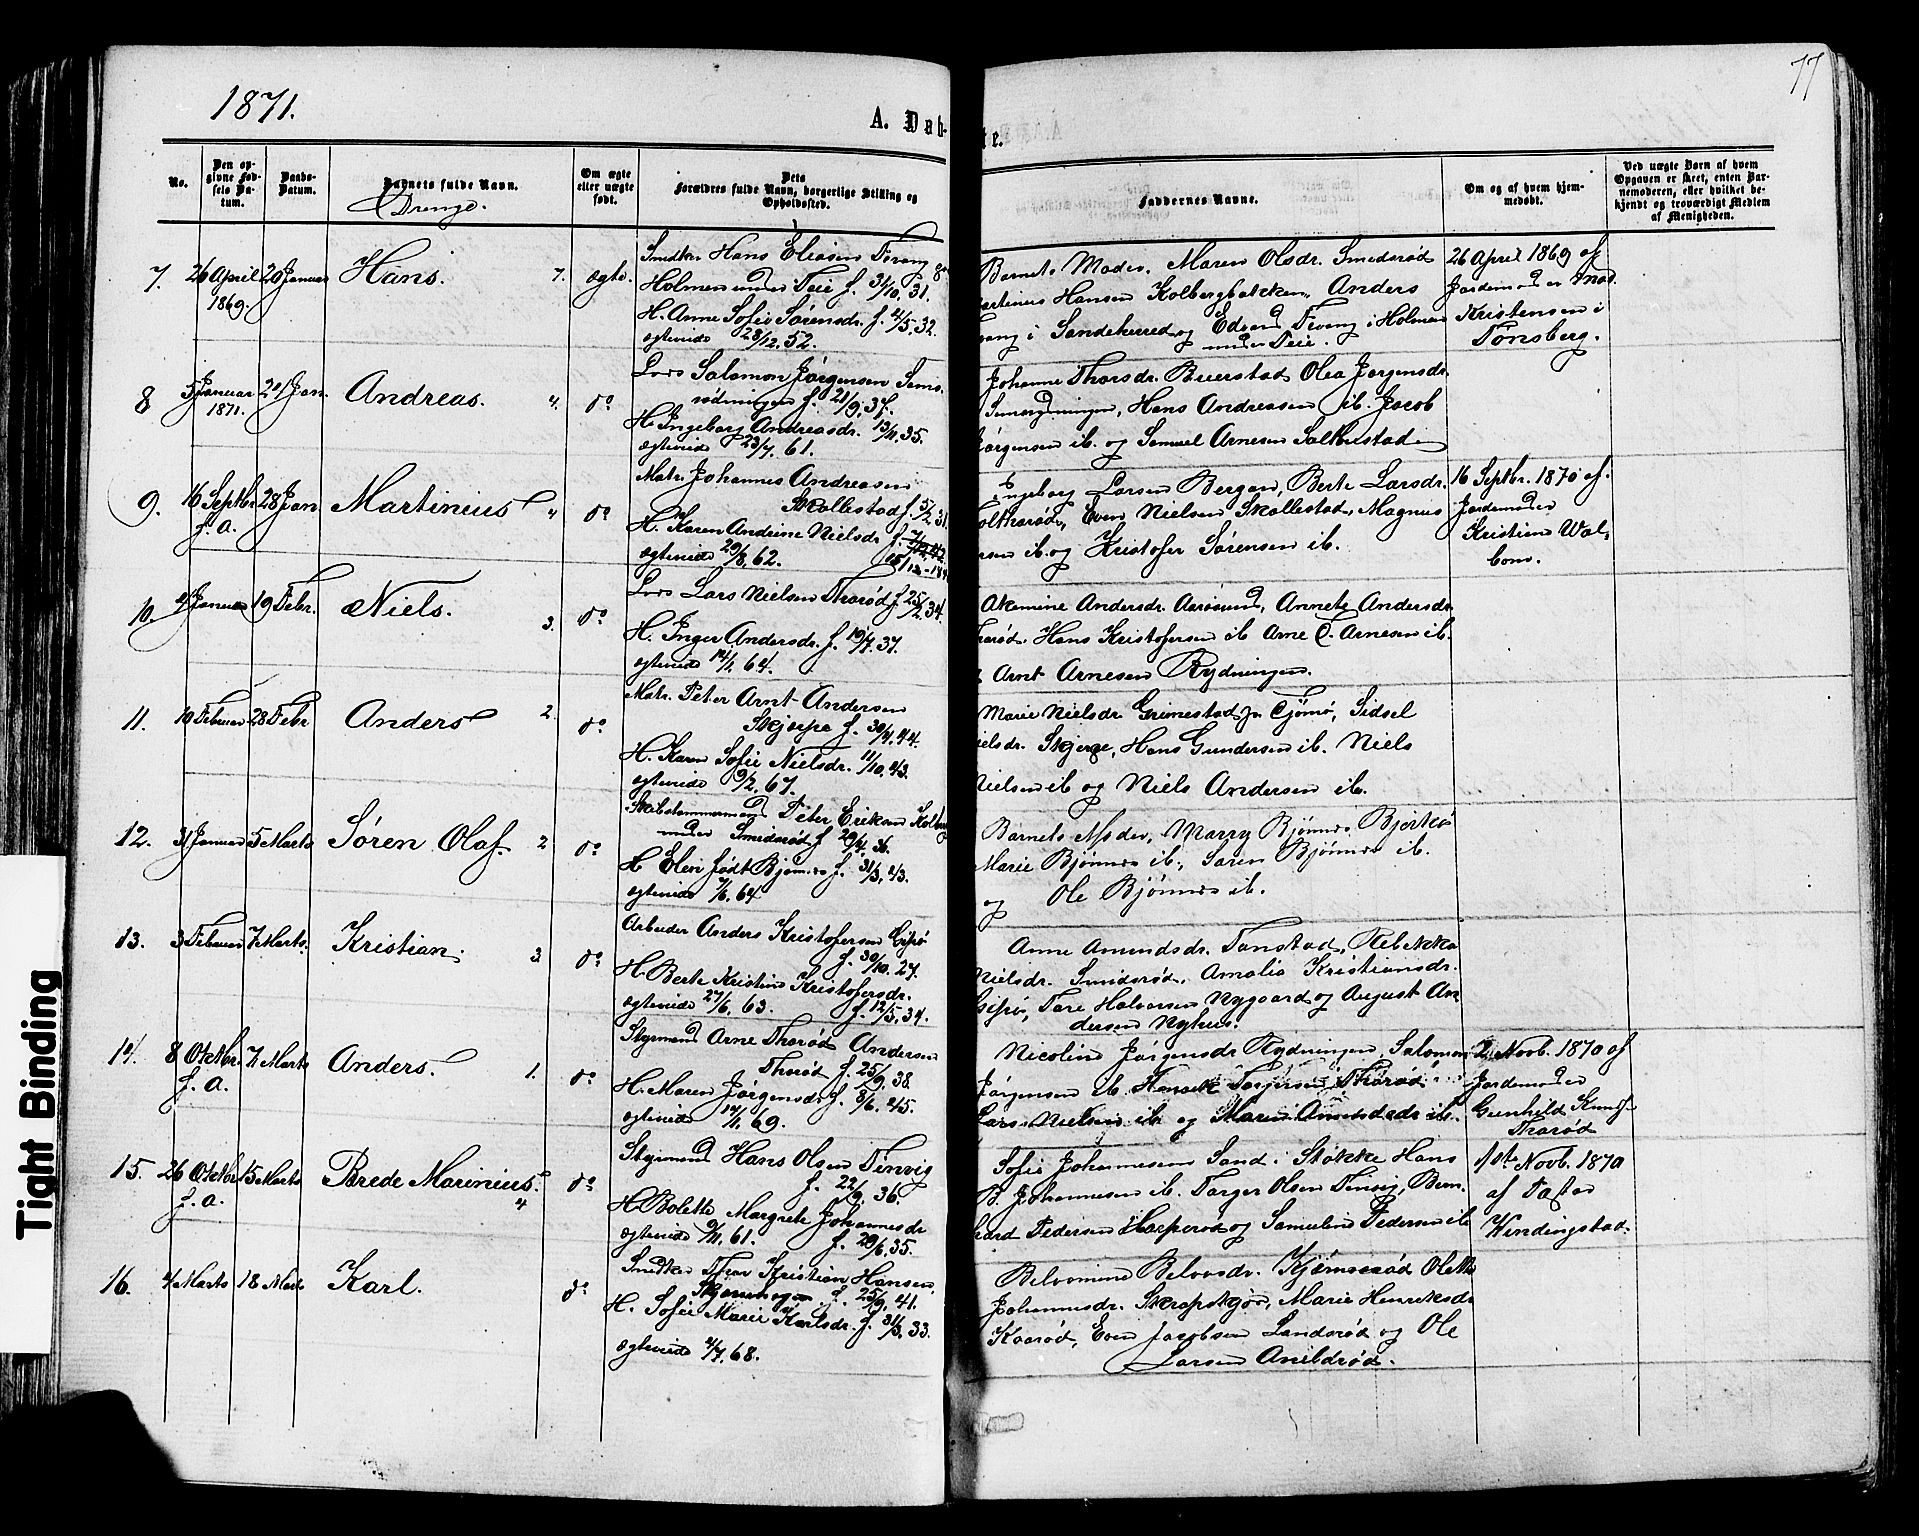 1871.
77
A. Døb-
te.
No.
Den op-
givne Fød-
sels Da-
tum.
Daabs-
Datum.
Barnets fulde Navn.
Drenge.
Om ægte
eller uægte
født.
Dets
Forældres fulde Navn, borgerlige Stilling og
Opholdssted.
Faddernes Navne.
Om og af hvem hjem-
medøbt.
Ved uægte Børn af hvem
Opgaven er skeet, enten Bar-
nemoderen, eller hvilket be-
kjendt og troværdigt Medlem
af Menigheden.
7. 26 April 20 Januar Hans. 7. ægte.
1869.
Smedker Hans Eliasen Tvang
Holmen under Teie f. 31/10, 31.
H. Anne Sofie Sørensdr. f. 4/5, 32.
ægteviede 28/12, 52.
Barnets Moder, Maren Olsdr. Smederød
Hansen Kolbergbakken, Anders
i Sandeherred og Edvard Tvang i Holmen
under Teie.
26 April 1869 af
Jordemoder Mad.
Kristensen i
Tønsberg.
8 5 Januar 21 Jan. Andreas. 4. do
1871.
Lods Salomon Jørgensen Sems-
rødningen f. 21/9, 37.
H. Ingeborg Andreasdr. 13/11, 35.
ægteviede 23/7, 61.
Johanne Thorsdr. Buerstad Olea Jørgensdr.
Semsrødningen, Hans Andreasen ib. Jacob
Jørgensen ib. og Samuel Arnesen Solbustad
9. 16 Septbr 28 Jan Martinius " do
f. a.
Matr. Johannes Andreasen
Skallestad f. 5/2, 31.
H. Karen Andrine Nielsdr f. 7/12, 42.
ægteviede 29/8, 62. 15/12-184
Ingeborg Larsen Bergan, Berte Larsdr.
Even Nielsen Skallestad, Magnus
ib. og Kristofer Sørensen ib.
16 Septbr. 1870 af
Jordemoder
Kristine Wal-
bom.
10. 9 Januar 19 Febr. Niels. 3. do
Lods Lars Nielsen Thorød f. 25/2, 34.
H. Inger Andersdr. f. 19/7, 37.
ægteviede 14/1, 64.
Akamine Andersdr. Aarøsund, Annete Andersdr
Thorød, Hans Kristofersen ib Arne C. Arnesen ib.
Arnt Arnesen Rydningen.
11. 10 Februar 28 Febr Anders 2. do
Matr. Peter Arnt Andersen
Skjerpe f. 30/4, 44.
H. Karen Sofie Nielsdr. 11/10, 43.
ægteviede 9/2, 67.
Marie Nielsdr Grimestad pr Tjømø, Sidsel
Nielsdr. Skjerpe, Hans Gundersen ib. Niels
Nielsen ib og Niels Andersen ib.
12. 31 Januar 5 Marts Søren Olaf. 2 do
Skibstømmermand Peter Eriksen Kolberg
under Smiderød f 20/4, 36.
H Elen født Bjønnes f. 31/3, 43.
ægteviede 7/6, 64
Barnets Moder, Marry Bjønnes, Bjerkø
Marie Bjønnes ib., Søren Bjønnes ib.
og Ole Bjønnes ib.
13. 3 Februar 7 Marts. Kristian. 3. do
Arbeider Anders Kristofersen Gipø
f. 30/10, 27.
H. Berte Kristine Kristofersdr.
ægteviede 27/6, 63. f. 12/5, 34.
Anne Amundsdr. Tanstad, Rebekka
Nielsdr. Smiderød, Amalia Kristiansdr.
Gipø, Tore Halvorsen Nygaard og August An-
dersen Nyhus.
14. 8 Oktbr 7 Marts Anders. 1. do
f. a.
Styrmand Arne Thorød Andersen
Thorød f. 25/9, 38.
H. Maren Jørgensdr f. 8/6, 45.
ægteviede 14/1, 69.
Nicoline Jørgensdr Rydningen, Salomon
Jørgensen ib. Henrik Torjersen Thorød
Lars Nielsen ib og Maren Amundsdr ib.
2 Novb. 1870 af
Jordemoder
Gunhild Knuds-
Thorød
15. 26 Oktbr 15 Marts Brede Marinius. 4 do
f. a.
Styrmand Hans Olsen Tenvig
f. 22/9, 36.
H. Bolette Margrete Johannesdr
ægteviede 9/11, 61. f. 20/6, 35.
Sofie Johannesen Sand i Stokke Hans
B. Johannesen ib. Torger Olsen Tenvig, Bern-
hard Pedersen Harperød og Samueline Pedersen ib
10te Novb. 1870
af Pastor
Windingstad.
16. 4 Marts 18 Marts Karl. do
Smedker Thor Kristian Hansen,
f. 25/9, 41.
H. Sofie Marie Karlsdr. f. 31/3, 33.
ægteviede 2/7, 68.
Belvomine Belvosdr. Kjømserød Olette
Johannesdr. Skrapskjær, Marie Henriksdr
Kaarød, Even Jacobsen Landsrød og Ole
Larsen Anildrød.
Tight Binding